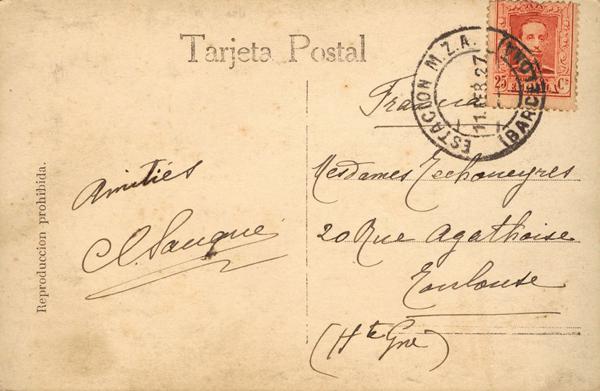 Tarjeta Postal
ESTACION M.Z.A. (BARCELONA)
11.FEB.27
25 Cs
Francia
Amitiés
Mesdames Techoueyres
20 Rue Agathoise
Toulouse
(Hte Gne)
Reproduccion prohibida.